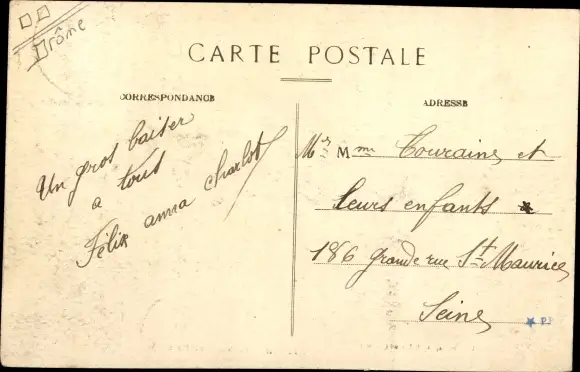 Drôme
CARTE POSTALE
CORRESPONDANCE
ADRESSE
Un gros baiser
a tous
Félix anna charlot
Mr Mme Touraine et
leurs enfants
186 grande rue St Maurice
Seine
PJ